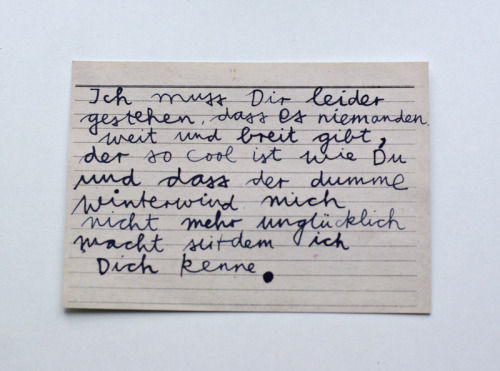 Ich muss Dir leider
gestehen, dass es niemanden
weit und breit gibt,
der so cool ist wie Du
und dass der dumme
Winterwind mich
nicht mehr unglücklich
macht seitdem ich
Dich kenne.